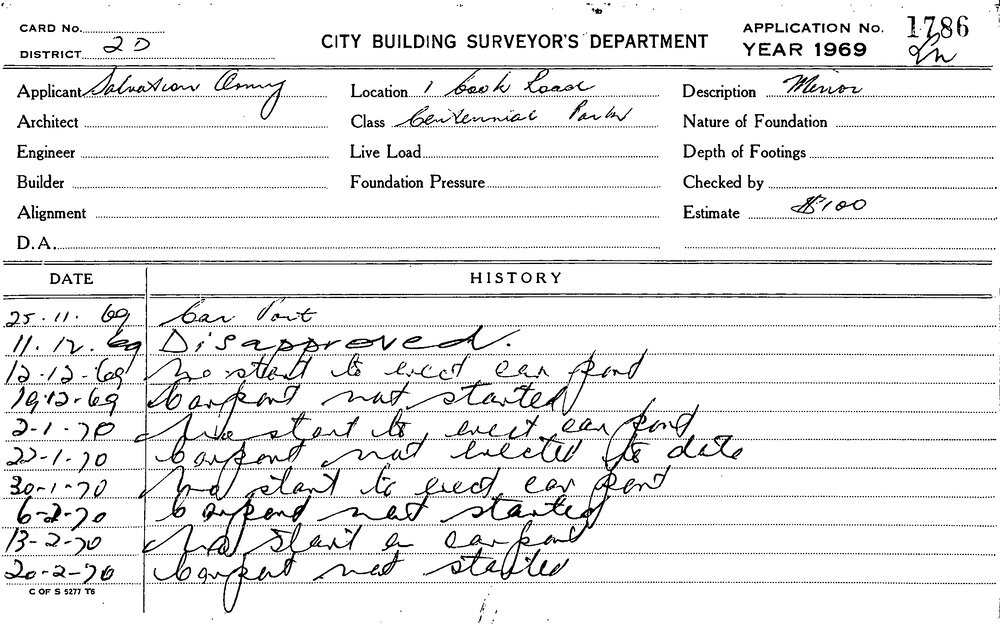 CARD No. APPLICATION No. 1786
DISTRICT 2D CITY BUILDING SURVEYOR'S DEPARTMENT YEAR 1969
Applicant Salvation Army Location 1 Cook Road Description Minor
Architect Class Centennial Park Nature of Foundation
Engineer Live Load Depth of Footings
Builder Foundation Pressure Checked by
Alignment Estimate $100
D.A.
DATE HISTORY
25.11.69 Car Port
11.12.69 Disapproved.
12-12-69 No start to erect car port
19.12-69 Carport not started
2-1-70 No start to erect car port
22-1-70 Carport not erected to date
30-1-70 No start to erect car port
6-2-70 Carport not started
13-2-70 No start on car port
20-2-70 Carport not started
C OF S 5277 T6